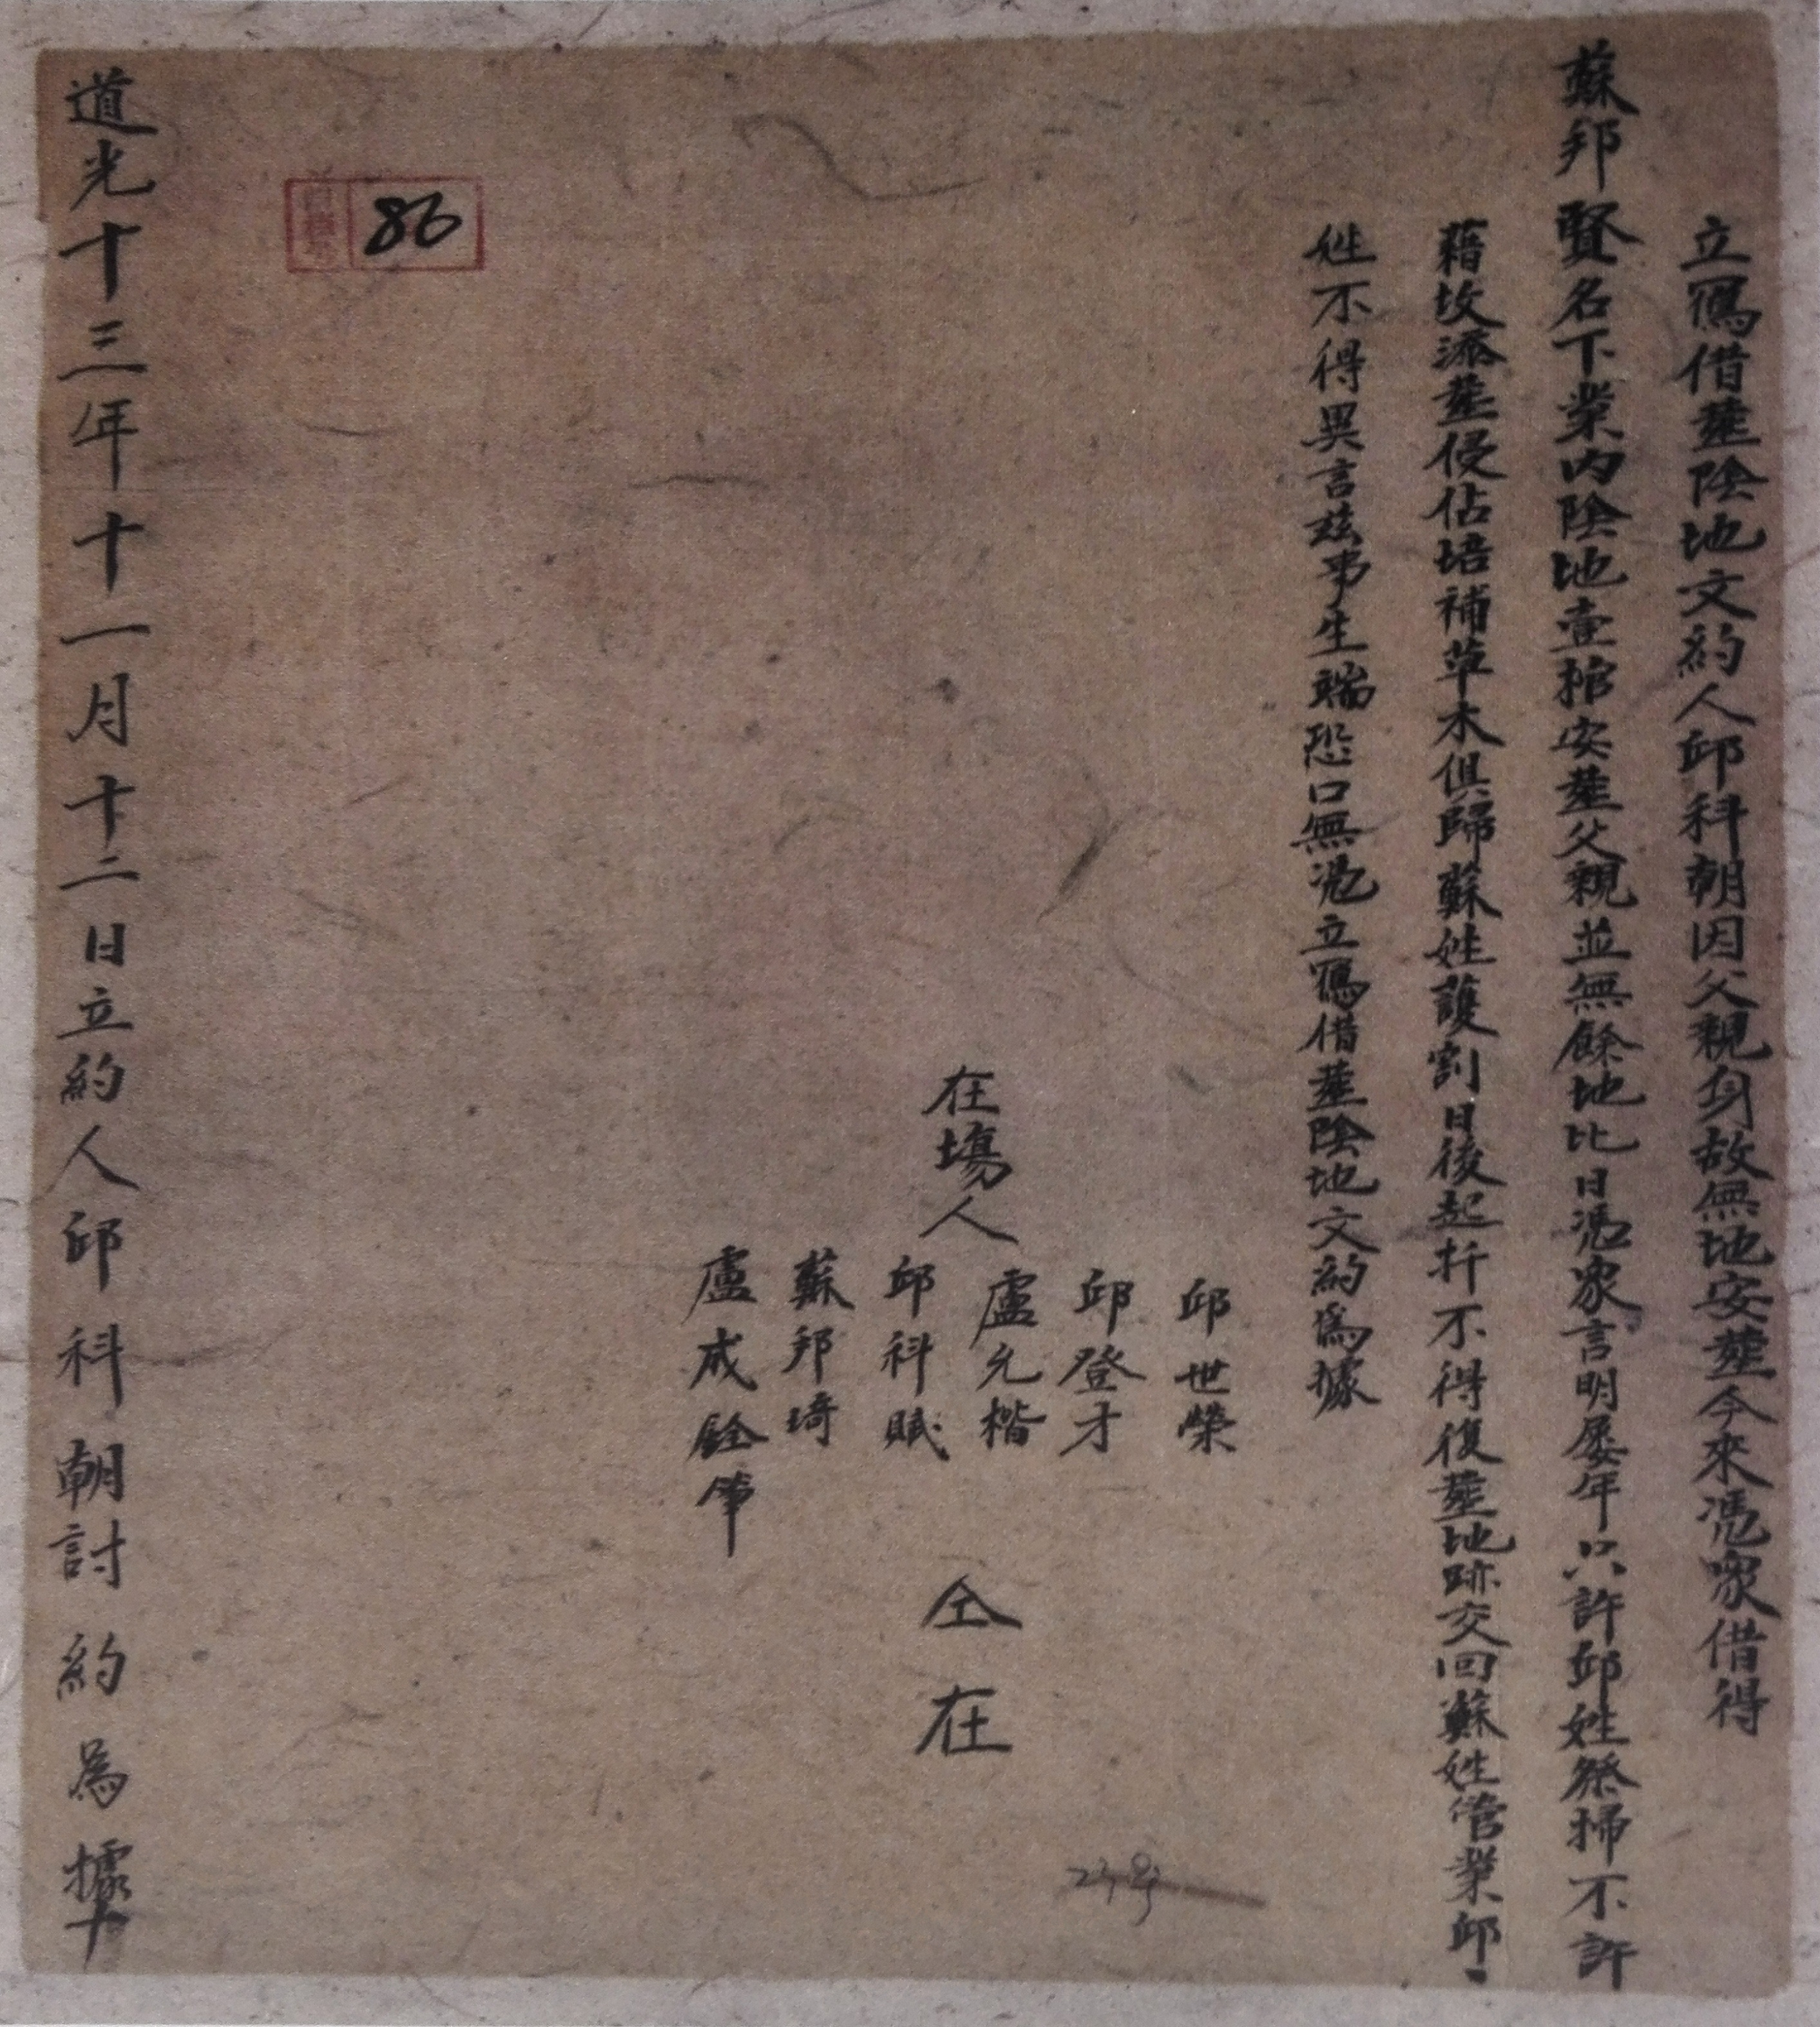 立寫借塟陰地文約人邱科朝因父親身故無地安塟今來凴衆借得
蘇邦賢名下業内陰地壹棺安塟父親並無餘地比日凴衆言明屡年只許邱姓祭掃不許
藉坟添塟侵佔培補草木俱歸蘇姓護割日後起扦不得復塟地跡交回蘇姓管業邱
姓不得異言兹事生端恐口無凴立寫借塟陰地文約爲據
邱世榮
邱登才
盧元楷
在塲人
邱科賦
蘇邦琦
盧成銓筆
仝在
86
道光十三年十一月十二日立約人邱科朝討約為據